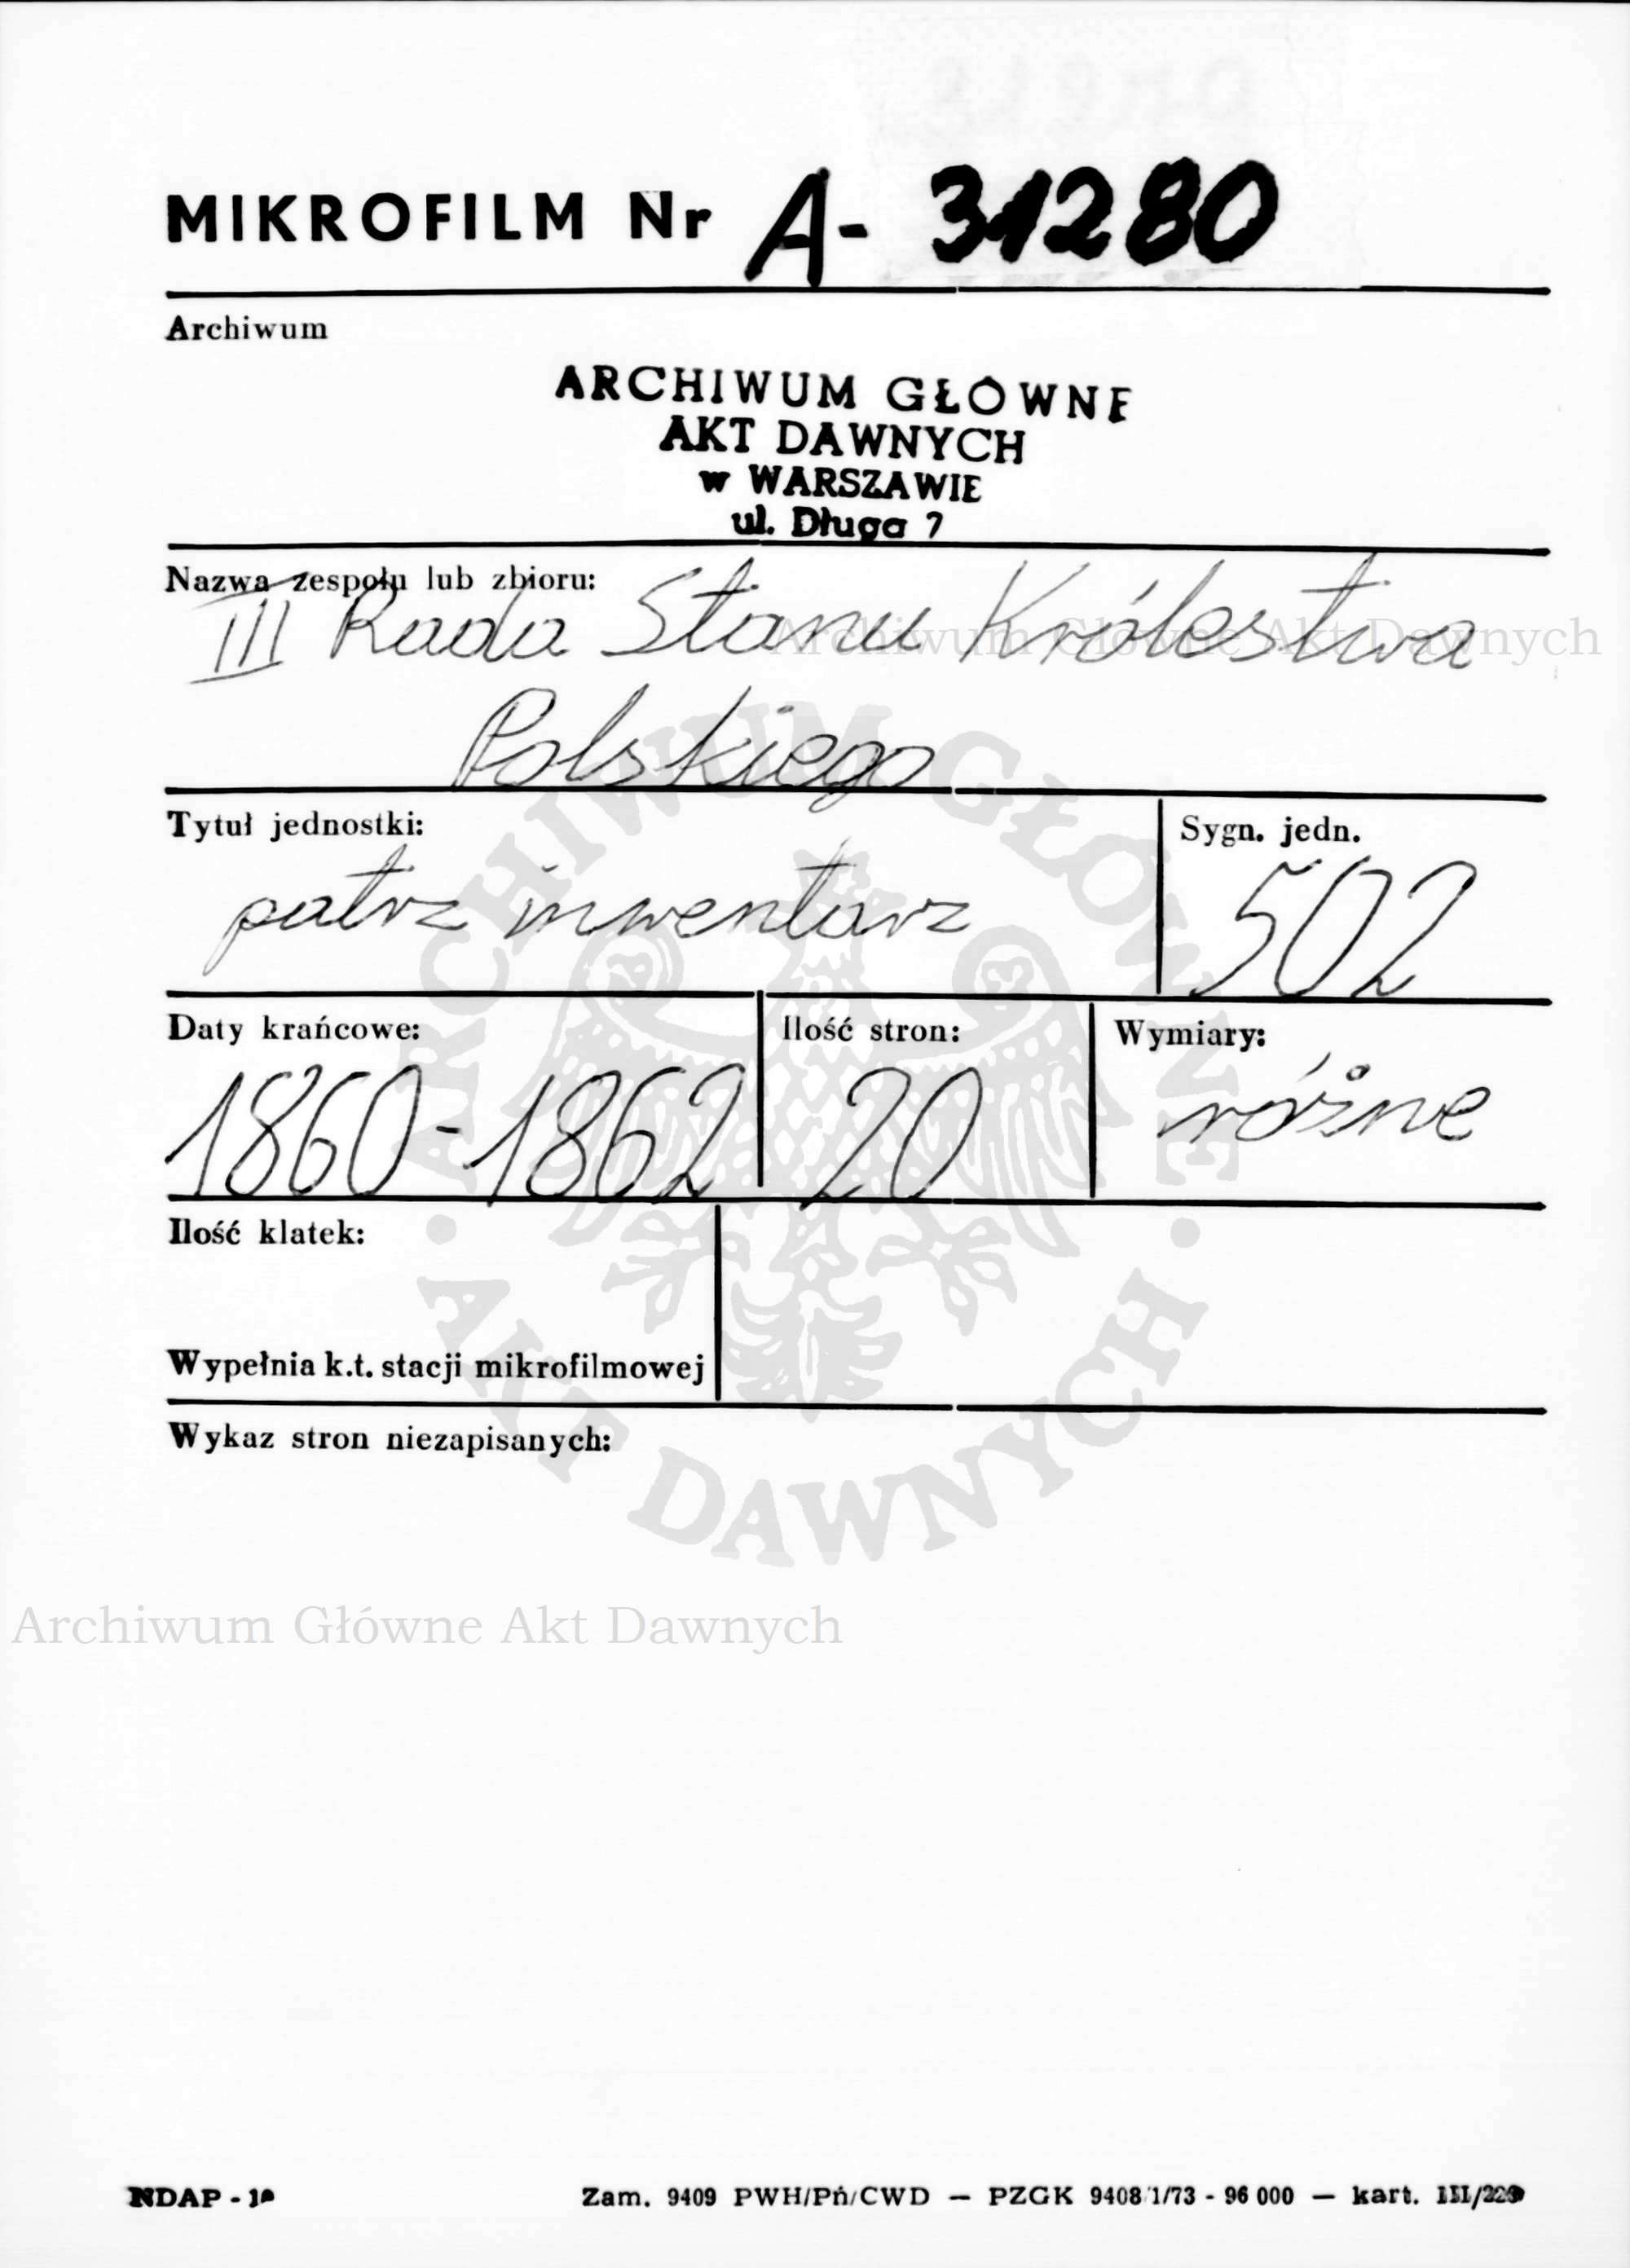 MIKROFILM Nr A- 31280
Archiwum
ARCHIWUM GŁÓWNE
AKT DAWNYCH
w WARSZAWIE
ul. Długa 7
Nazwa zespołu lub zbioru:
III Rada Stanu Królestwa
Archiwum Główne Akt Dawnych
Polskiego
Tytuł jednostki:
Sygn. jedn.
patrz inwentarz
502
Daty krańcowe:
Ilość stron:
Wymiary:
1860-1862
20
różne
Ilość klatek:
Wypełnia k.t. stacji mikrofilmowej
Wykaz stron niezapisanych:
ARCHIWUM GŁÓWNE
AKT DAWNYCH
Archiwum Główne Akt Dawnych
NDAP -
Zam. 9409 PWH/Pń/CWD — PZGK 9408/1/73 - 96 000 — kart.